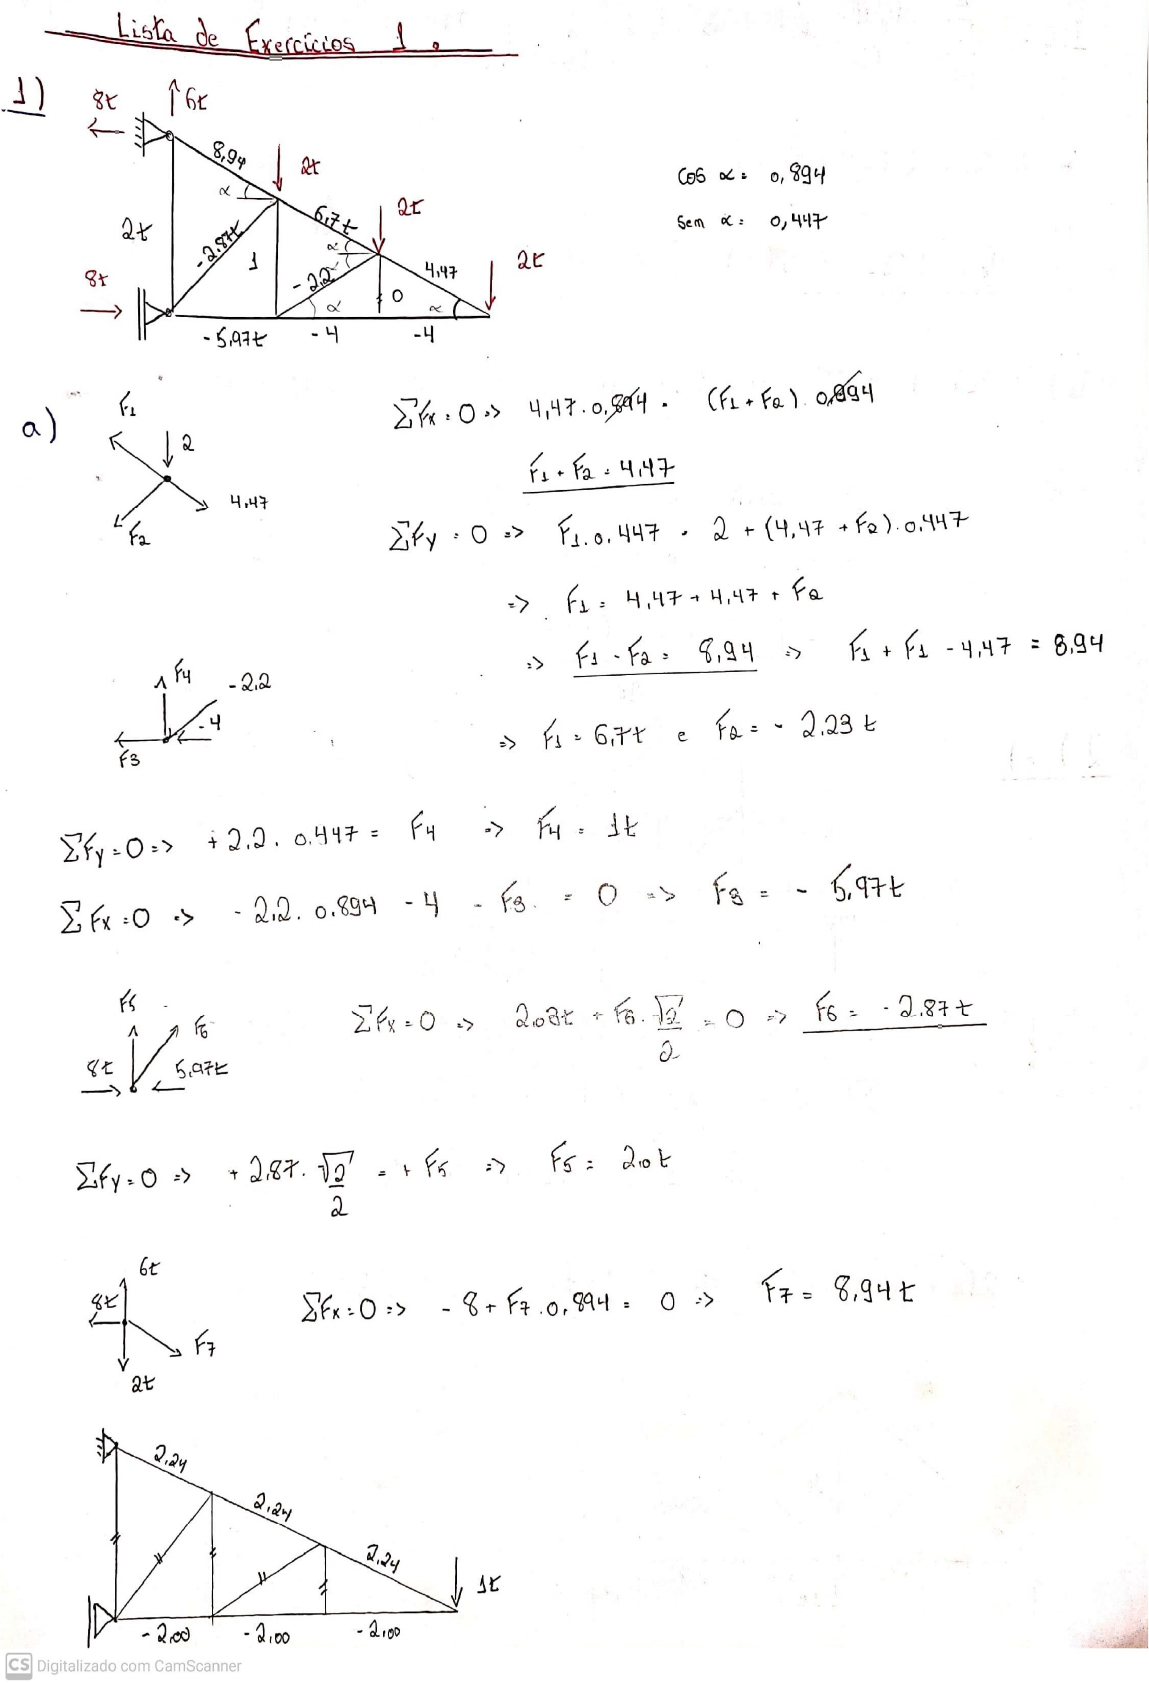 Lista de Exercícios 1.
1)
8t
6t
8,94
2t
α
6,7t
2t
cos α = 0,894
sem α = 0,447
2t
-2.87t
1
α
-2,2
4,47
2t
8t
α
0
α
-5,97t
-4
-4
a)
F1
2
4,47
F2
ΣFx = 0 => 4,47.0,894 = (F1 + F2). 0,894
F1 + F2 = 4,47
ΣFy = 0 => F1.0,447 = 2 + (4,47 + F2).0,447
=> F1 = 4,47 + 4,47 + F2
=> F1 - F2 = 8,94 => F1 + F1 - 4,47 = 8,94
=> F1 = 6,7t e F2 = - 2,23 t
F4
-2,2
-4
F3
ΣFy = 0 => + 2,2. 0.447 = F4 => F4 = 1t
ΣFx = 0 => - 2,2. 0,894 - 4 - F3. = 0 => F3 = - 5,97t
F5
F6
8t
5,97t
ΣFx = 0 => 2,03t + F6. √2/2 = 0 => F6 = - 2.87t
ΣFy = 0 => + 2,87. √2/2 = + F5 => F5 = 2,0t
6t
8t
F7
2t
ΣFx = 0 => - 8 + F7.0,894 = 0 => F7 = 8,94t
2,24
2,24
2,24
1t
-2,00
-2,00
-2,00
CS Digitalizado com CamScanner